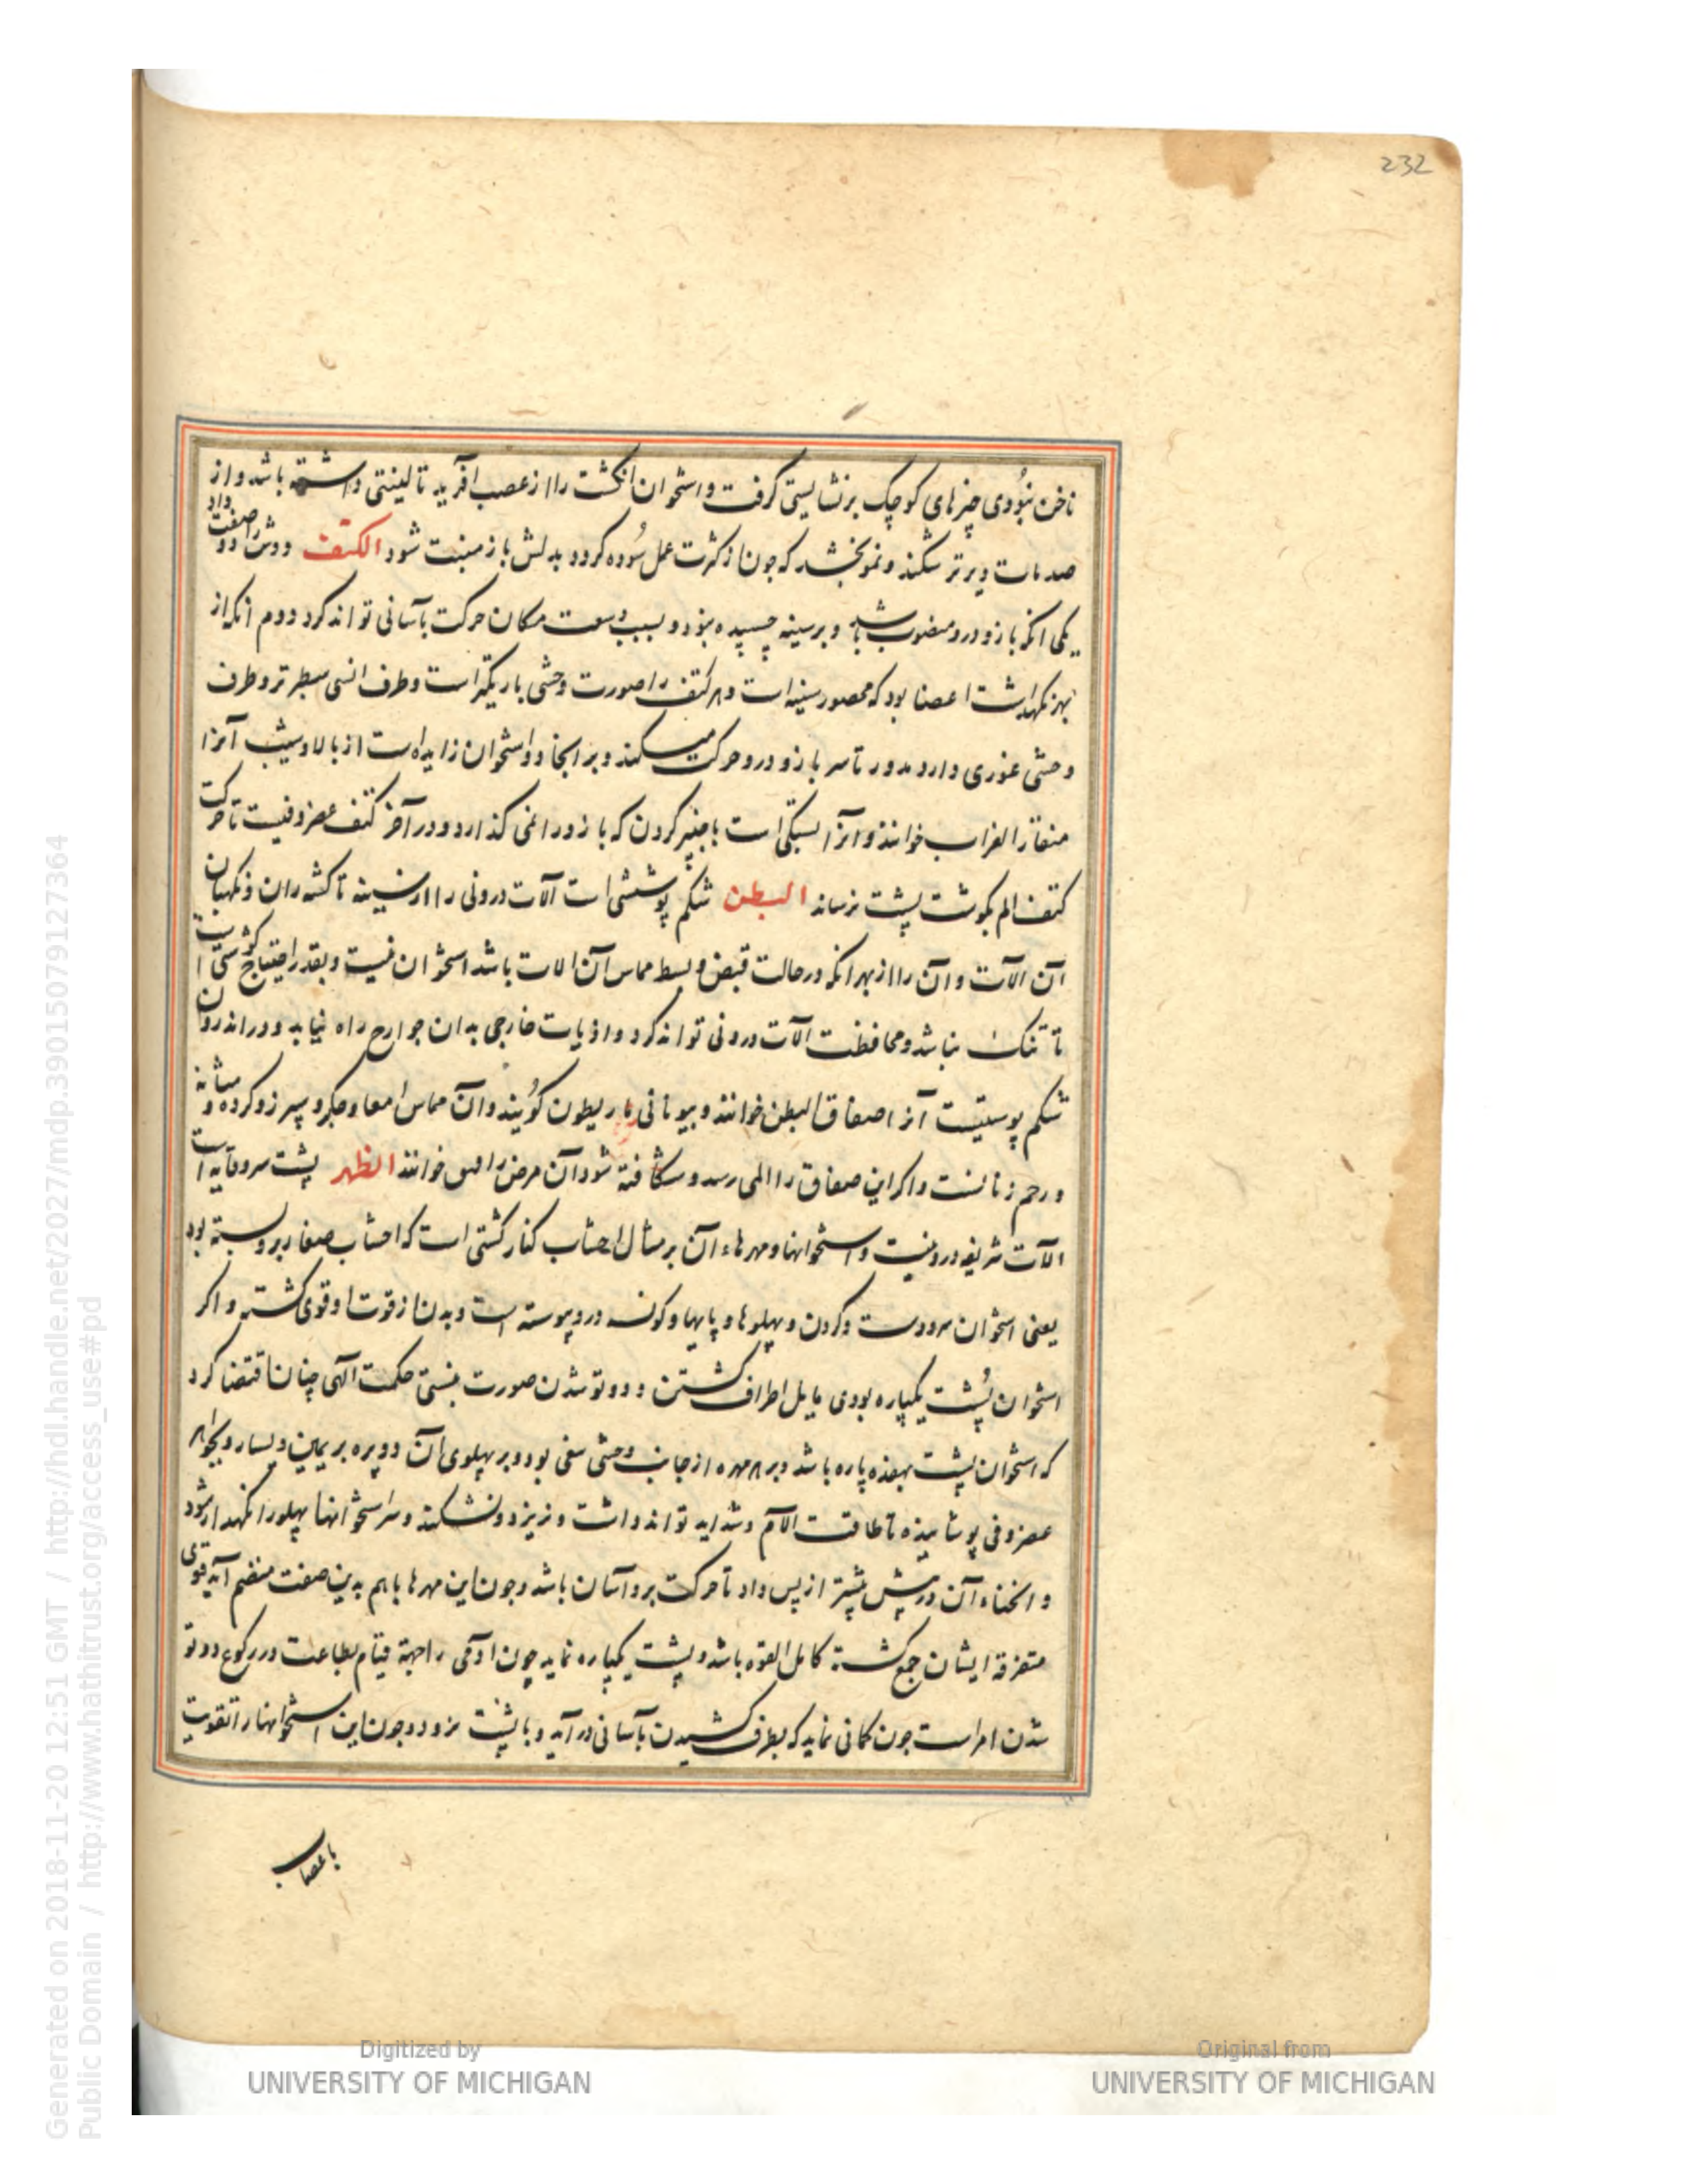 232
ناخن نبودی چیزهای کوچک برنشایستی گرفت و استخوان انکشت را از عصب آفرید تا لینتی داشته باشد و از
صدمات دیرتر شکند و نمو بخشد که چون از کثرت عمل سوده کردد بدلش باز منبت شود الکتف دوش را دو صفت داد
یکی انکه بازو درو منضوب باشد و بر سینه چسپیده نبود و بسبب وسعت مکان حرکت بآسانی تواند کرد دوم انکه از
بهر نکهداشت اعضا بود که محصور سینه است و هر کتف را صورت وحشی باریکتر است و طرف انسی سطبرتر و طرف
وحشی غوری دارد مدور تا سر بازو درو حرکت میکند و بر انجا دو استخوان زایده است از بالا و شیب آنرا
منقار الغراب خوانند و آنرا بستکی است با چنبر کردن که بازو را نمی کذارد و در آخر کتف غضروفیست تا حرکت
کتف الم بکوشت پشت نرساند البطن شکم پوششی است آلات درونی را از سینه تا کشه ران و نکهبان
آن الآت و آن را از بهر انکه در حالت قبض و بسط مماس آن الات باشد استخوان نیست و بقدر احتیاج کوشتی است
تا تنک نباشد و محافظت الآت درونی تواند کرد و اذیات خارجی بدان جوارح راه نیابد و در اندرون
شکم پوستیست آنرا صفاق البطن خوانند و بیونانی باریطون کویند و آن مماس امعا و جکر و سپرز و کرده و مثانه
و رحم زنانست و اکر این صفاق را المی رسد و شکافته شود آن مرض را فتق خوانند الظهر پشت سر وقایه است
الآت شریفه درونیست و استخوانها و مهرهاء آن بر مثال اخشاب کنار کشتی است که اخشاب صغار برو بسته بود
یعنی استخوان سر و دست و کردن و پهلوها و پایها و کون درو پیوسته است و بدن از قوت او قوی کشته و اکر
استخوان پشت یکپاره بودی مایل اطراف کشتن و دو تو شدن صورت نبستی حکمت الهی چنان اقتضا کرد
که استخوان پشت بهفده پاره باشد و بر هر مهره از جانب وحشی سغی بود و بر پهلوی آن دو پره بر یمین و یسار و بجواهر
غضروفی پوشانیده تا طاقت الآم و شداید تواند داشت و نریزد و نشکند و سر استخوانها پهلو را نکهدار شود
و انحناء آن در پیش بیشتر از پس داد تا حرکت برو آسان باشد و چون این مهرها باهم بدین صفت منضم آید قوی
متفرقه ایشان جمع کشته کامل القوه باشد و پشت یکپاره نماید چون ادمی را جهة قیام بطاعت در رکوع دو تو
شدن امراست چون کمانی نماید که بطرف کشیدن بآسانی در آید و با پشت نرود و چون این استخوانها را تقویت
باعصاب
Digitized by
UNIVERSITY OF MICHIGAN
Original from
UNIVERSITY OF MICHIGAN
Generated on 2018-11-20 12:51 GMT / http://hdl.handle.net/2027/mdp.39015079127364
Public Domain / http://www.hathitrust.org/access_use#pd